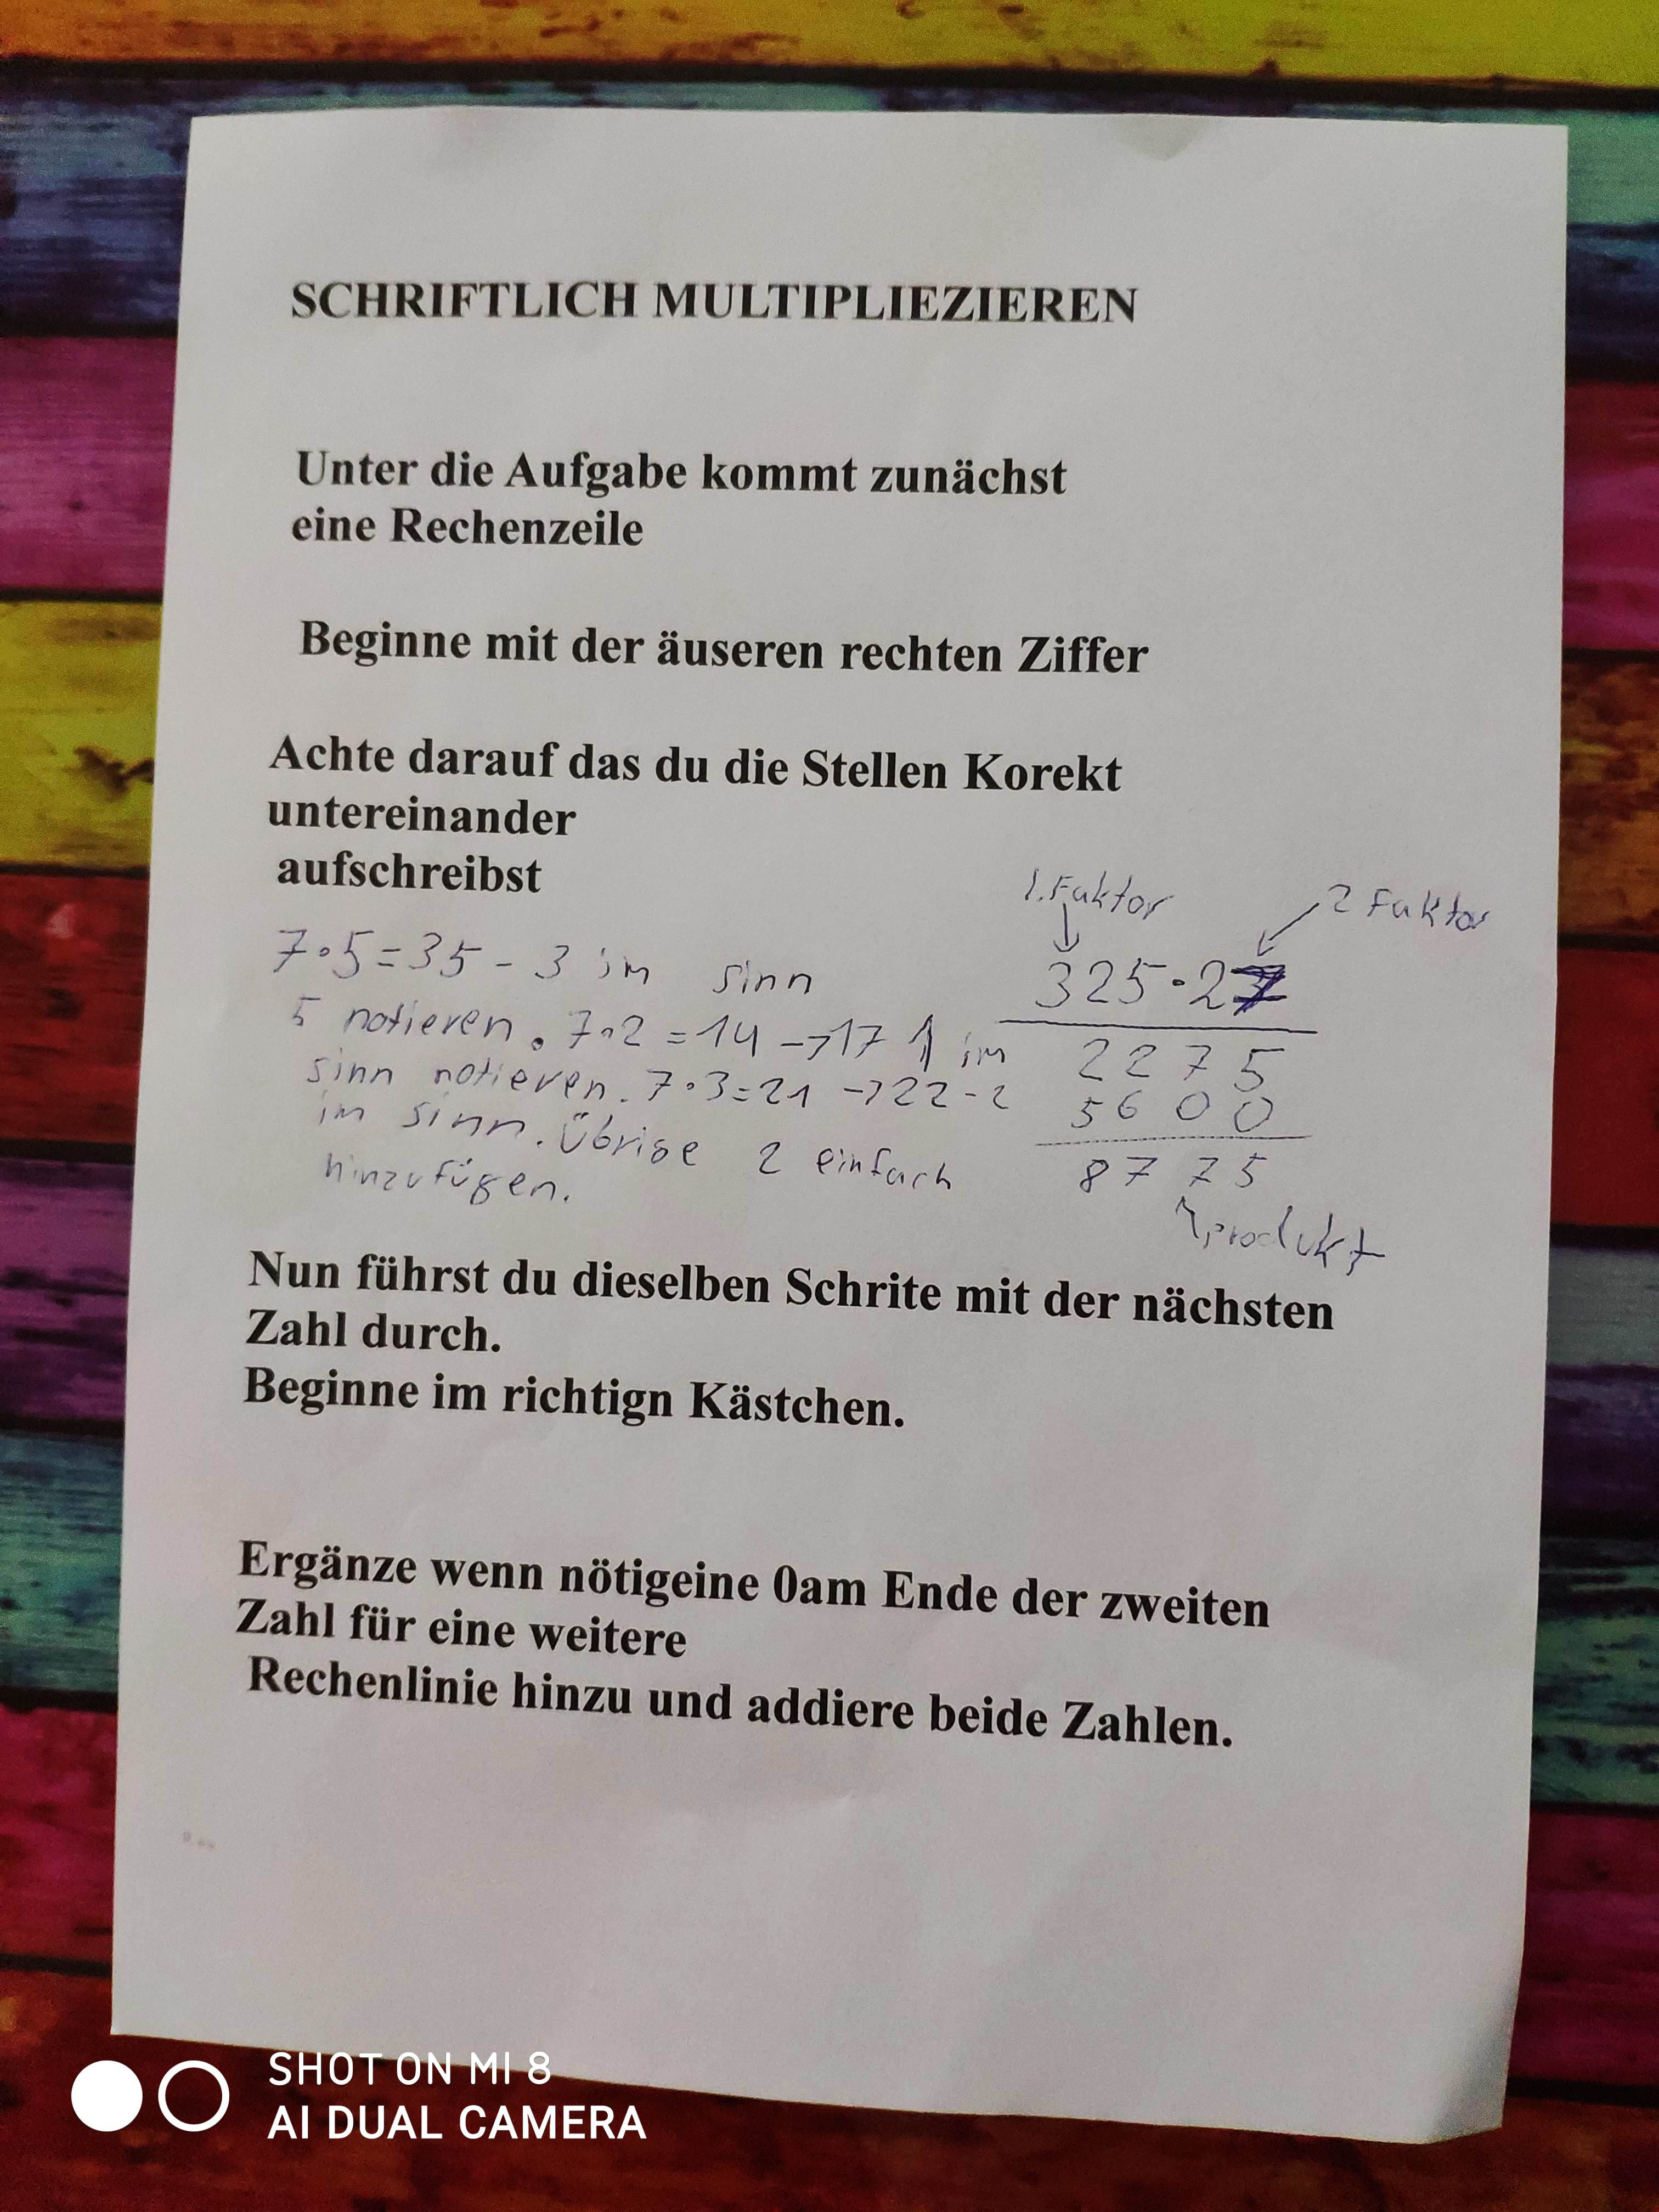 SCHRIFTLICH MULTIPLIEZIEREN
Unter die Aufgabe kommt zunächst
eine Rechenzeile
Beginne mit der äuseren rechten Ziffer
Achte darauf das du die Stellen Korekt
untereinander
aufschreibst
7·5=35 - 3 im sinn
5 notieren. 7·2=14 →17 1 im
sinn notieren. 7·3=21 →22-2
im sinn. Übrige 2 einfach
hinzufügen.
1. Faktor
2 Faktor
325·27
2275
5600
8775
Produkt
Nun führst du dieselben Schrite mit der nächsten
Zahl durch.
Beginne im richtign Kästchen.
Ergänze wenn nötigeine 0am Ende der zweiten
Zahl für eine weitere
Rechenlinie hinzu und addiere beide Zahlen.
SHOT ON MI 8
AI DUAL CAMERA